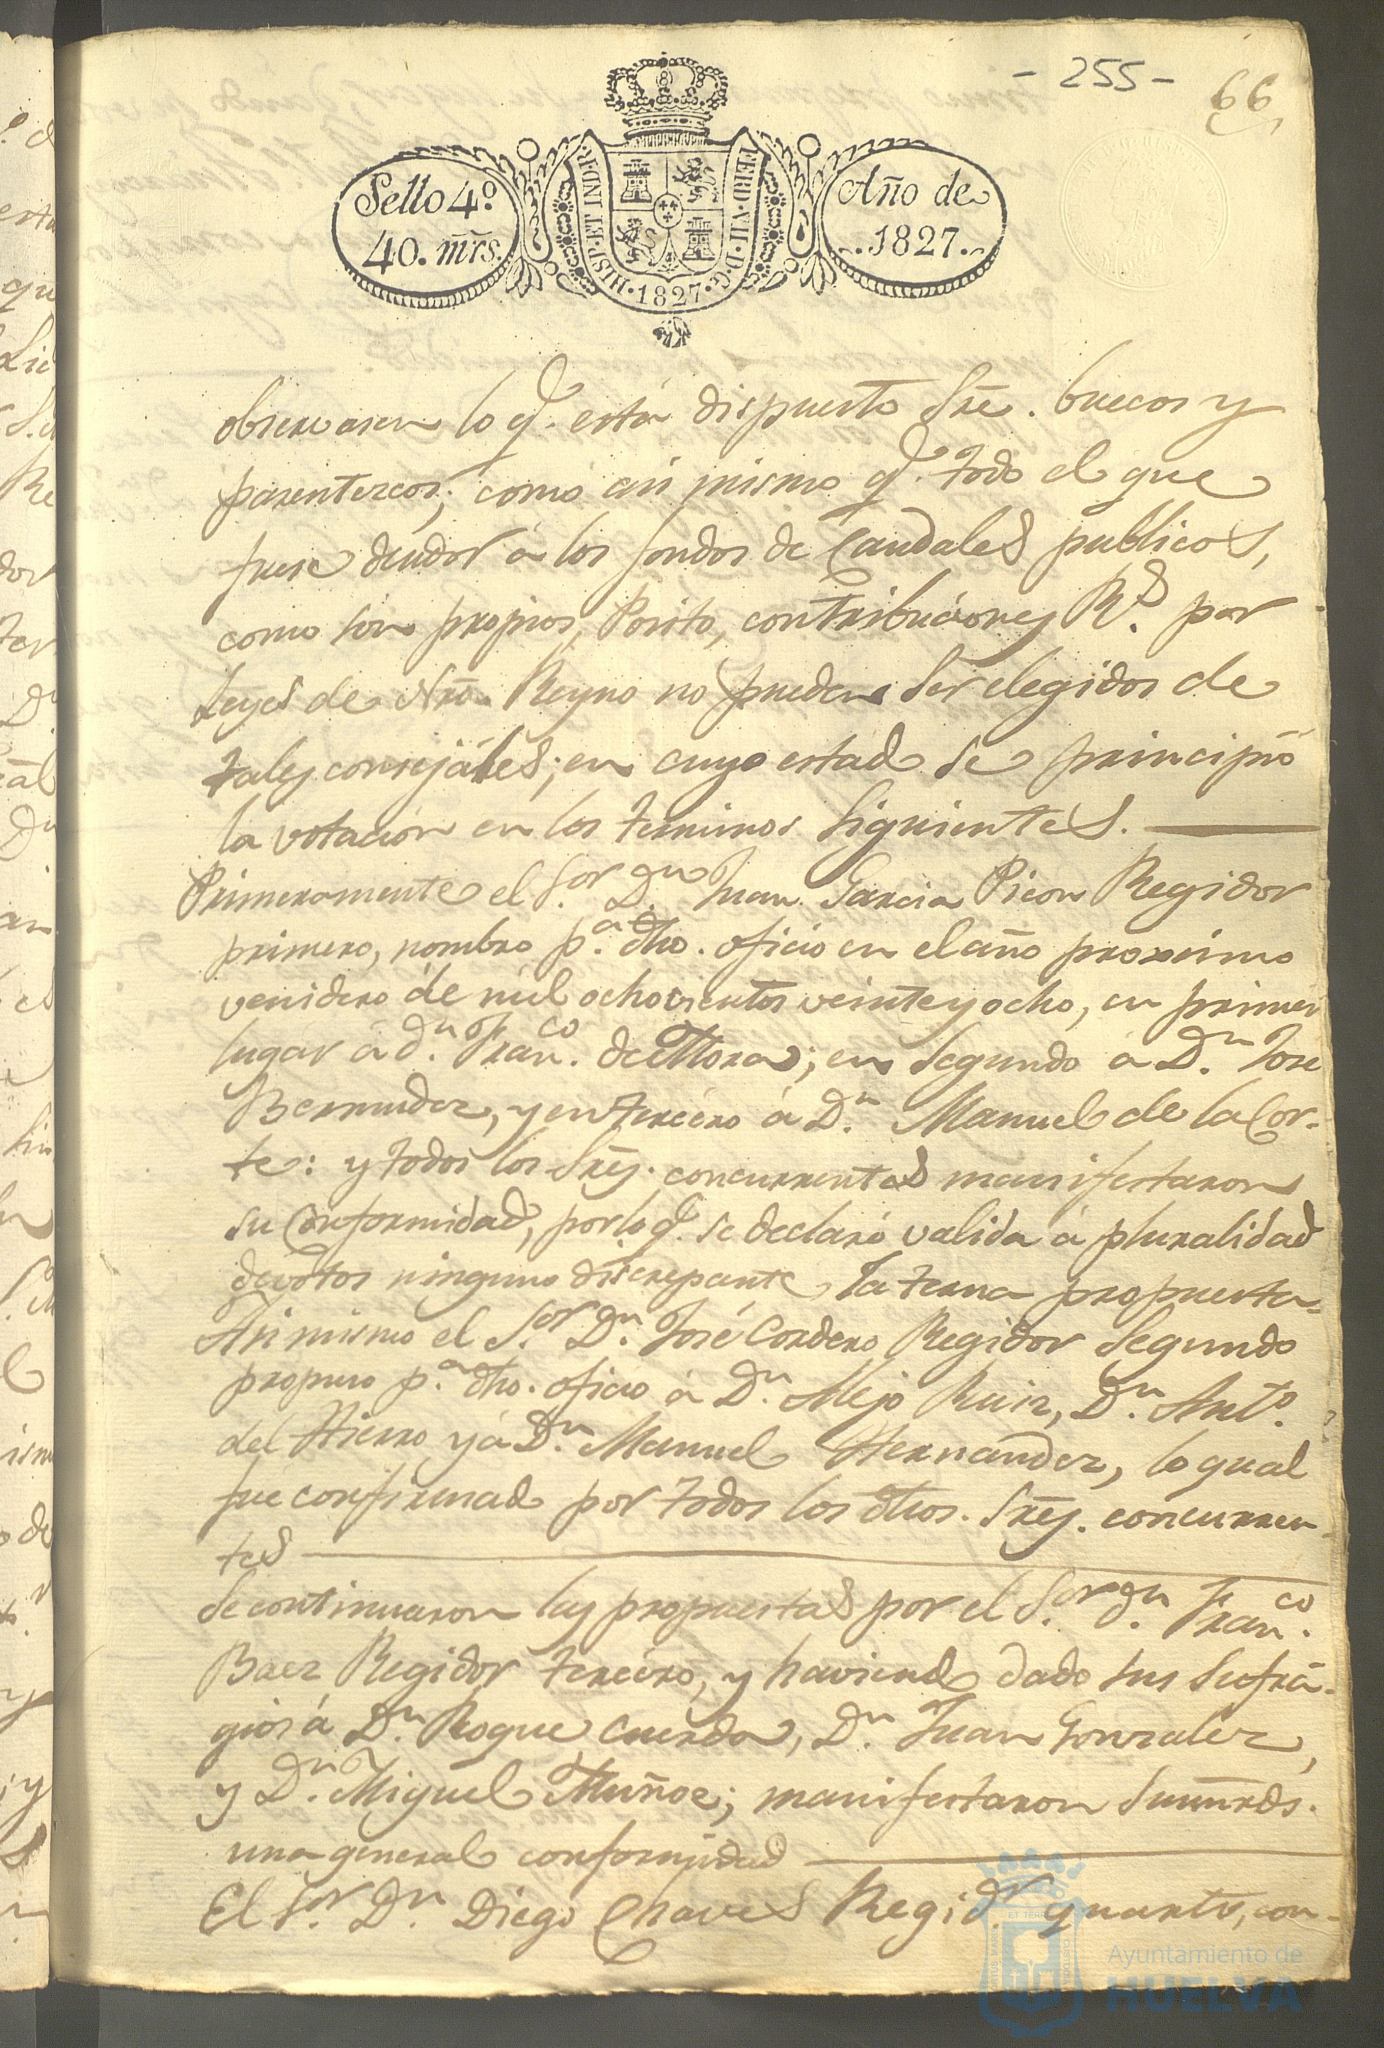 - 255 -
66
Sello 4º
40. mrs.
HISP. ET IND. R.
FERD. VII. D. G.
1827
Año de
1827.
observasen lo q.e está dispuesto Sre. huecos y
parentezcos; como asi mismo q.e todo el que
fuese deudor á los fondos de Caudales publicos,
como son propios, Posito, contribuciones Rs. por
Leyes de Nro. Reyno no pueden ser elegidos de
tales consejáles; en cuyo estado se principió
la votacion en los terminos siguientes.
Primeramente el Sor. Dn. Juan Garcia Picon Regidor
primero, nombro pa. dho. oficio en el año proximo
venidero de mil ochocientos veinte y ocho, en primer
lugar á dn. Franco. de Mora; en segundo á Dn. Jose
Bermudez, y en tercéro á Dn. Manuel de la Cor-
te: y todos los Sres. concurrentes manifestaron
su conformidad, por lo q.e se declaró valida á pluralidad
de votos ninguno discrepante la terna propuesta.
Asi mismo el Sor. Dn. José Cordero Regidor Segundo
propuso pa. dho. oficio á Dn. Alejo Ruiz, Dn. Anto.
del Hierro y á Dn. Manuel Hernandez, lo qual
fue confirmado por todos los dhos. Sres. concurren-
tes
Se continuaron las propuestas por el Sor. dn. Franco.
Baez Regidor tercéro, y haviendo dado sus sufrá-
gios á Dn. Roque Cuerda, Dn. Juan Gonzalez,
y Dn. Miguel Muñoz; manifestaron Sumrds.
una general conformidad
El Sor. Dn. Diego Chaves Regidr. quarto, con-
Ayuntamiento de
HUELVA